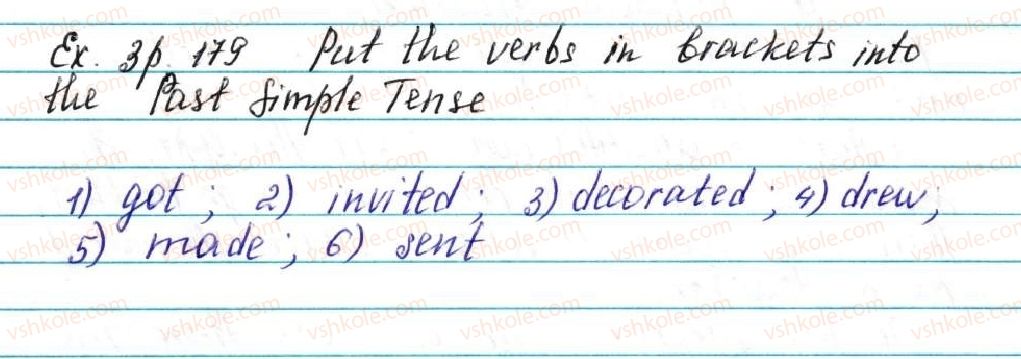 Ex. 3p. 179 Put the verbs in brackets into
the Past Simple Tense
1) got; 2) invited; 3) decorated; 4) drew;
5) made; 6) sent